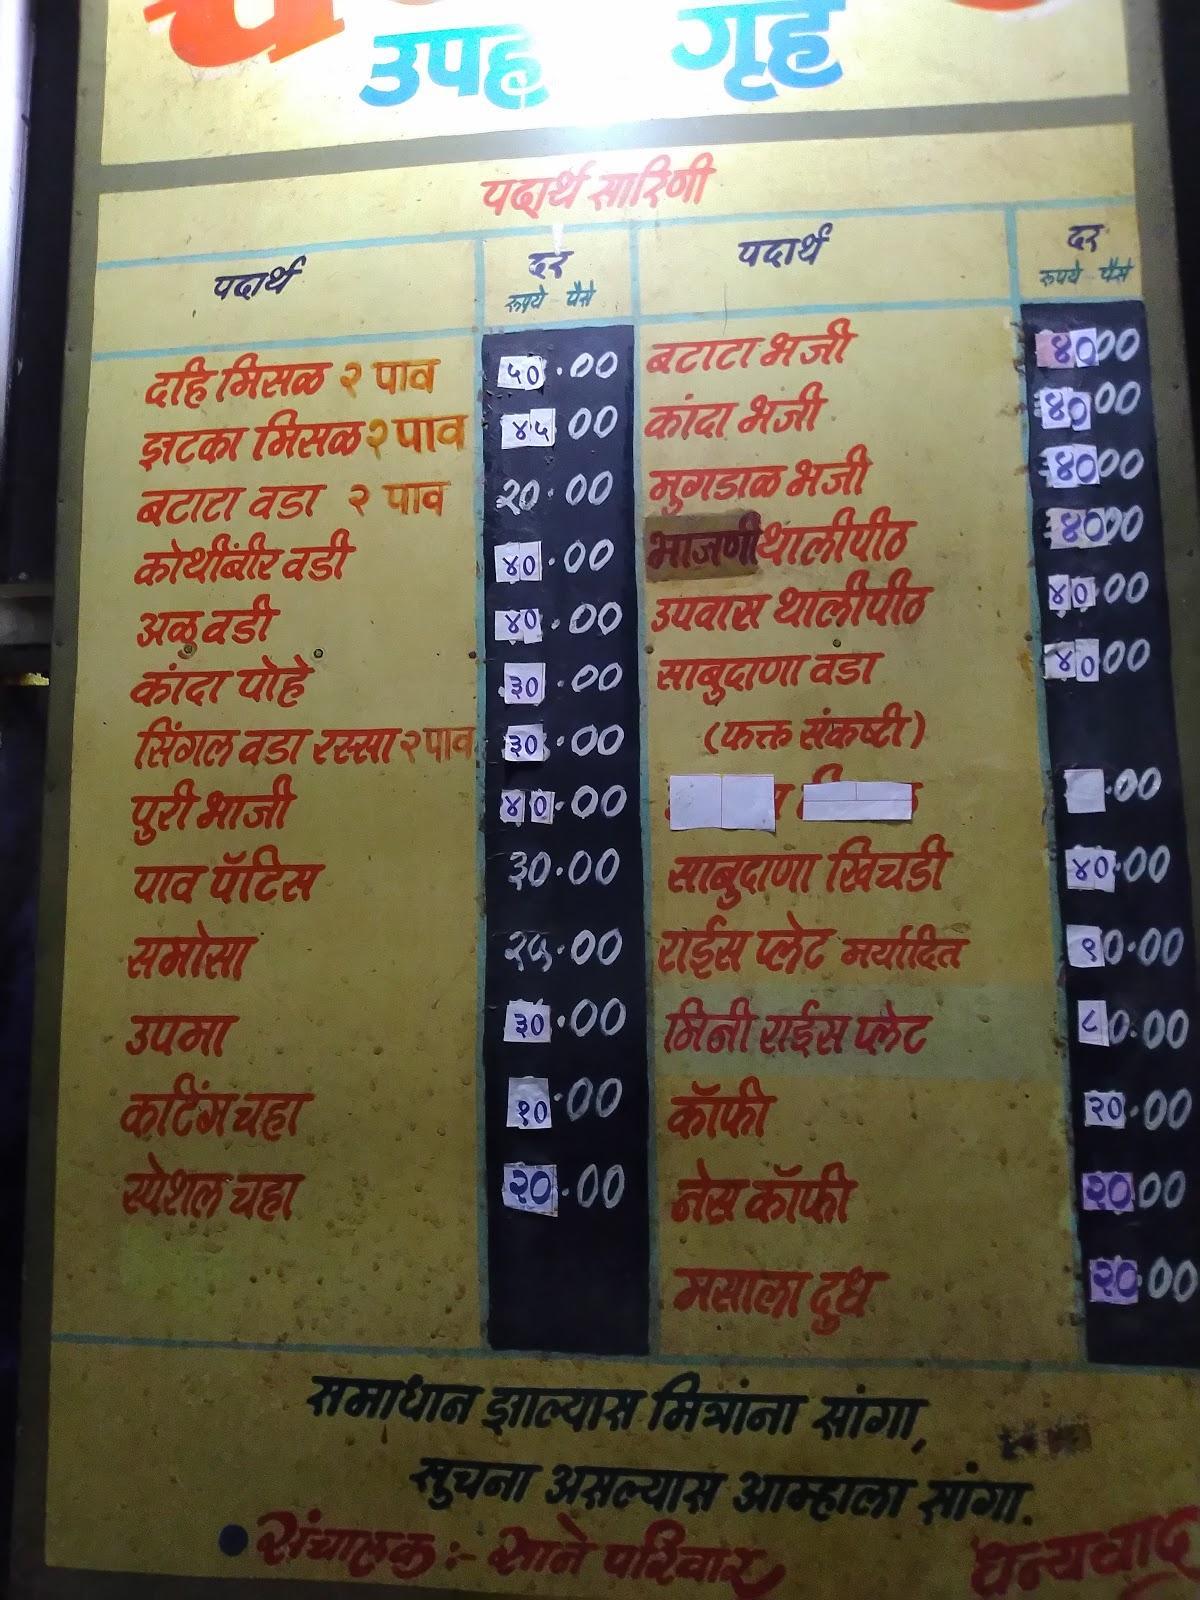 उपहा गृह
पदार्थ सारिणी
पदार्थ दर
रूपये पैसे
दहि मिसळ २ पाव ५०.००
झटका मिसळ २ पाव ४५.००
बटाटा वडा २ पाव २०.००
कोथींबीर वडी ४०.००
अळु वडी ४०.००
कांदा पोहे ३०.००
सिंगल वडा रस्सा २ पाव ३०.००
पुरी भाजी ४०.००
पाव पॅटिस ३०.००
समोसा २५.००
उपमा ३०.००
कटिंग चहा १०.००
स्पेशल चहा २०.००
पदार्थ दर
रूपये पैसे
बटाटा भजी ४०.००
कांदा भजी ४०.००
मुगडाळ भजी ४०.००
भाजणी थालीपीठ ४०.००
उपवास थालीपीठ ४०.००
साबुदाणा वडा ४०.००
(फक्त संकष्टी)
.००
साबुदाणा खिचडी ४०.००
राईस प्लेट मर्यादित ९०.००
मिनी राईस प्लेट ८०.००
कॉफी २०.००
नेस कॉफी २०.००
मसाला दुध २०.००
समाधान झाल्यास मित्रांना सांगा,
सुचना असल्यास आम्हाला सांगा.
• संचालक :- साने परिवार
धन्यवाद